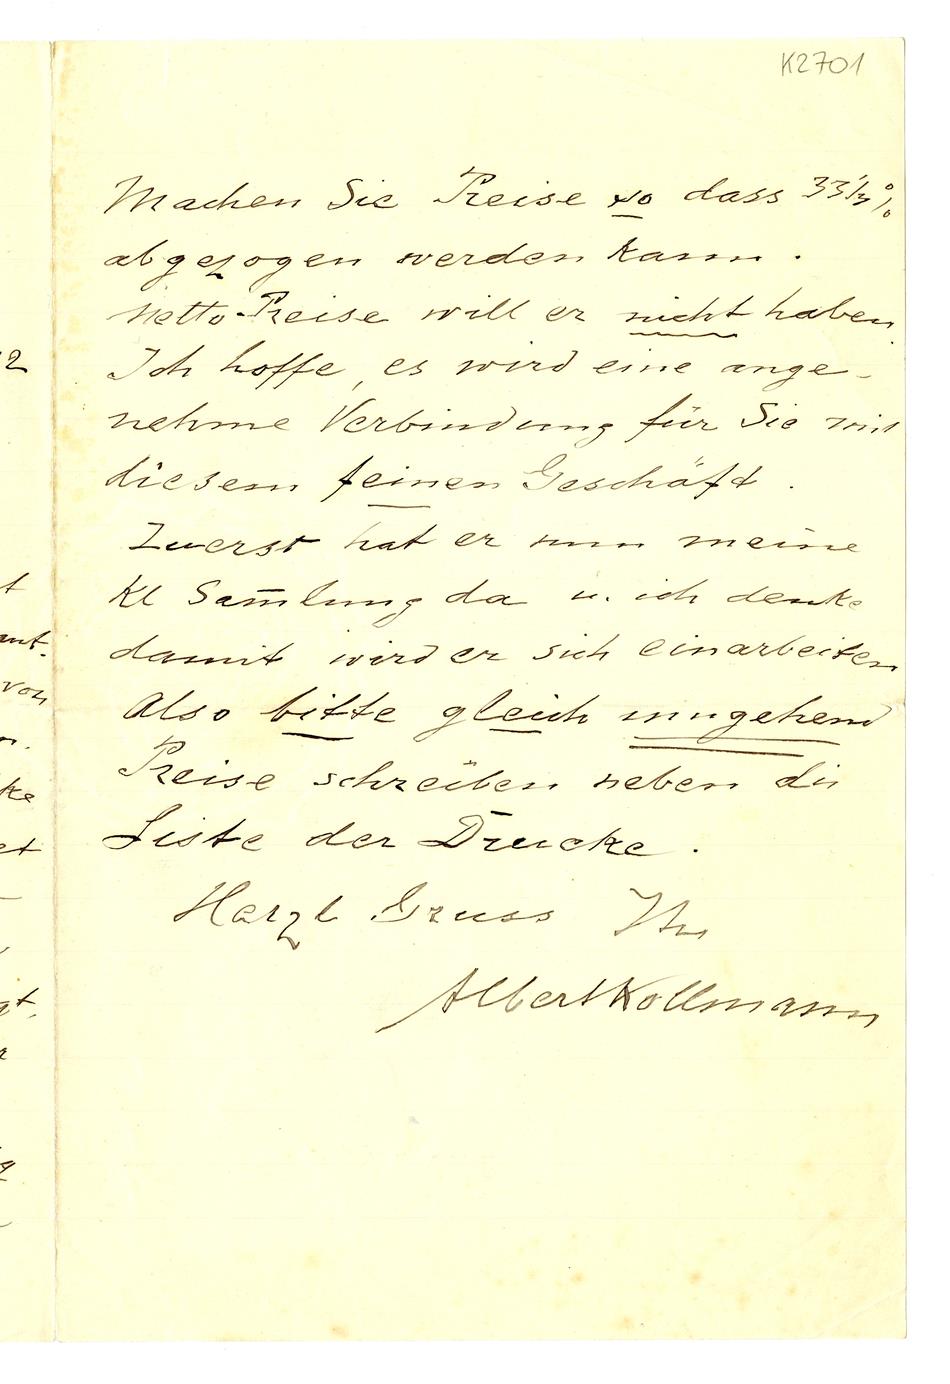 K2701
Machen Sie Preise so dass 33⅓%
abgezogen werden kann.
Netto-Preise will er nicht haben.
Ich hoffe, es wird eine ange-
nehme Verbindung für Sie mit
diesem feinen Geschäft.
Zuerst hat er nun meine
Kl Sam̅lung da u. ich denke
damit wird er sich einarbeiten
Also bitte gleich umgehend
Preise schreiben neben die
Liste der Drucke.
Herzl Gruss Ihr
Albert Kollmann